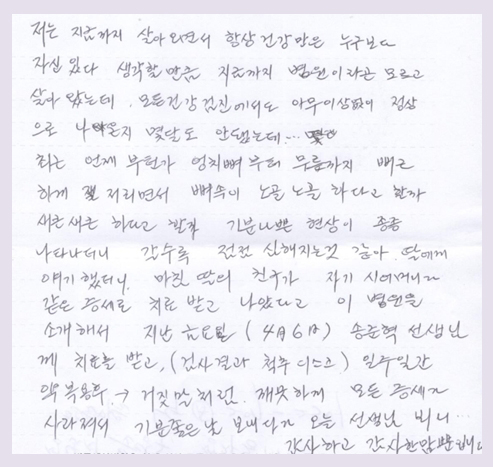 저는 지금까지 살아오면서 항상 건강만은 누구보다
자신있다 생각할만큼 지금까지 병원이라곤 모르고
살아 왔는데. 모든건강검진에서도 아무이상없이 정상
으로 나온지 몇달도 안됐는데...
최근 언제 부턴가 엉치뼈 부터 무릎까지 뻐근
하게 저리면서 뼈속이 노골노골 하다고 할까
새큰새큰 하다고 할까 기분나쁜 현상이 종종
나타나더니 갈수록 점점 심해지는것 같아. 딸에게
얘기했더니. 마침 딸의 친구가 자기 시어머니가
같은 증세로 치료 받고 나았다고 이 병원을
소개해서 지난 금요일 (4月6日) 송준혁 선생님
께 치료를 받고, (검사결과 척추 디스크) 일주일간
약복용후. → 거짓말처럼. 깨끗하게 모든 증세가
사라져서 기분좋은날 보내다가 오늘 선생님 뵈니...
감사하고 감사한맘뿐입니다